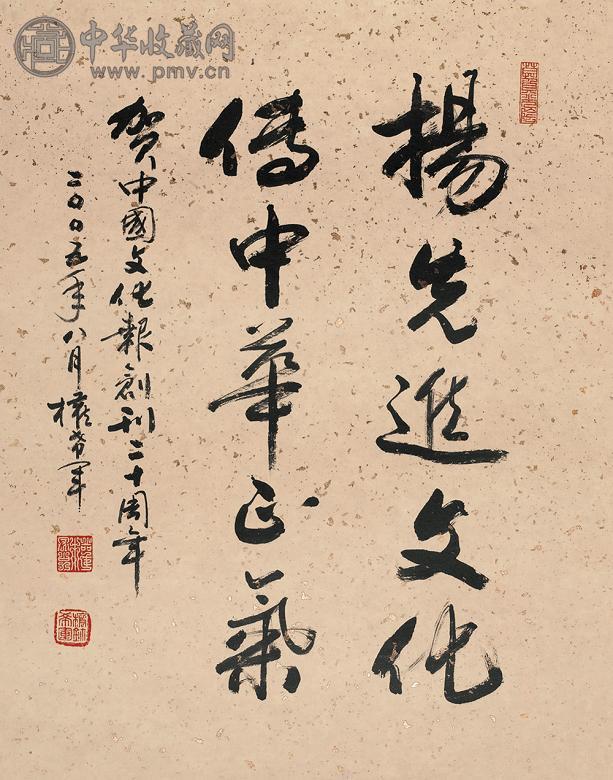 揚先進文化
傳中華正氣
贺中國文化報創刊二十周年
二〇〇五年八月權希軍
中华收藏网
www.pmv.cn